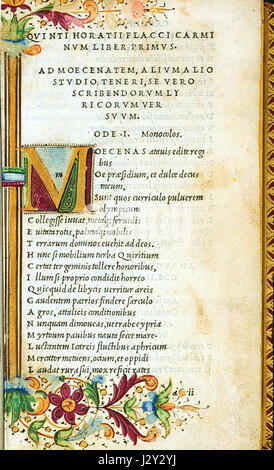 QVINTI HORATII FLACCI CARMI
NVM LIBER PRIMVS.
AD MOECENATEM, ALIVM ALIO
STVDIO TENERI, SE VERO
SCRIBENDORVM LY
RICORVM VER
SVVM.
ODE .I. Monocolos.
M OECENAS atauis edite regi
bus
O et præsidium, et dulce decus
meum,
Sunt quos curriculo puluerem
olympicum
C ollegisse iuuat, metaq; feruidis
E uitata rotis, palmaq; nobilis
T errarum dominos euehit ad deos.
H unc si mobilium turba Quiritium
C ertat ter geminis tollere honoribus,
I llum si proprio condidit horreo
Q uicquid de libycis uerritur areis
G audentem patrios findere sarculo
A gros, attalicis conditionibus
N unquam dimoueas, ut trabe cypria
M yrtoum pauidus nauta secet mare.
L uctantem Icariis fluctibus aphricum
M ercator metuens, ocium, et oppidi
L audat rura sui, mox reficit rates
a ii
alamy
Image ID: J2Y2YJ
www.alamy.com